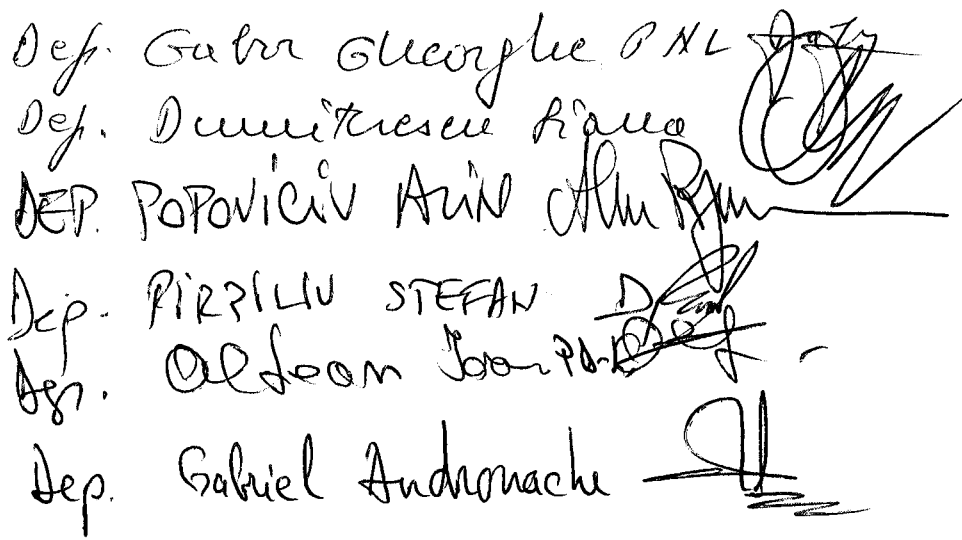 Dep. Gabor Gheorghe PNL
Dep. Dumitrescu Liana
DEP. POPOVICIU ALIN
Dep. PIRPILIU STEFAN D
Dep. Oltean Ioan PD-L
Dep. Gabriel Andronache